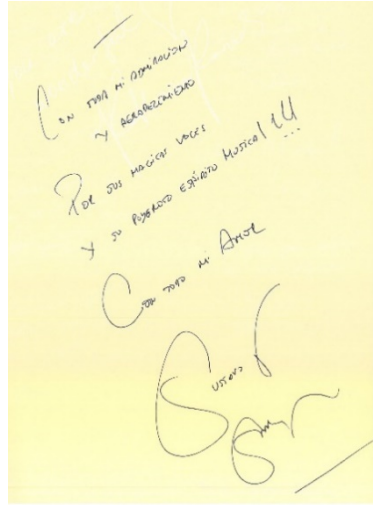 Con toda mi admiración
y agradecimiento
Por sus magicas voces
y su poderoso espíritu musical!!!
Con todo mi Amor
Gustavo